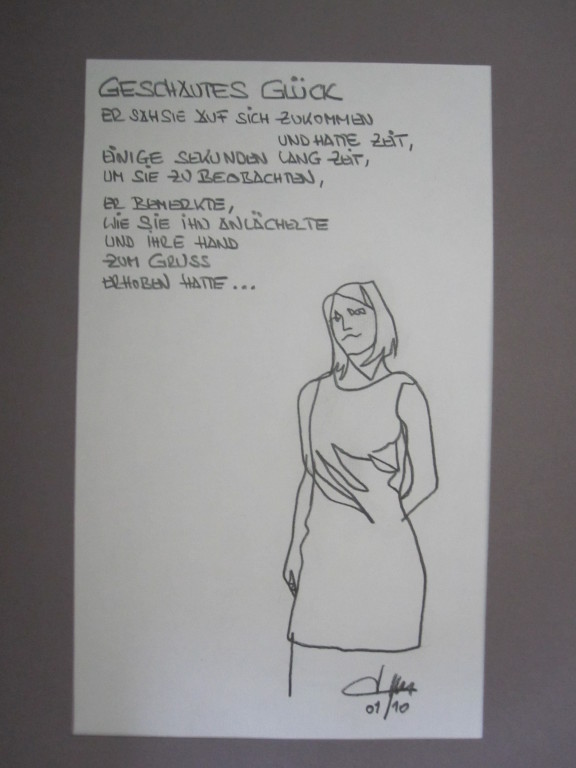 GESCHAUTES GLÜCK
ER SAH SIE AUF SICH ZUKOMMEN
UND HATTE ZEIT,
EINIGE SEKUNDEN LANG ZEIT,
UM SIE ZU BEOBACHTEN,
ER BEMERKTE,
WIE SIE IHN ANLÄCHELTE
UND IHRE HAND
ZUM GRUSS
ERHOBEN HATTE...
01/10